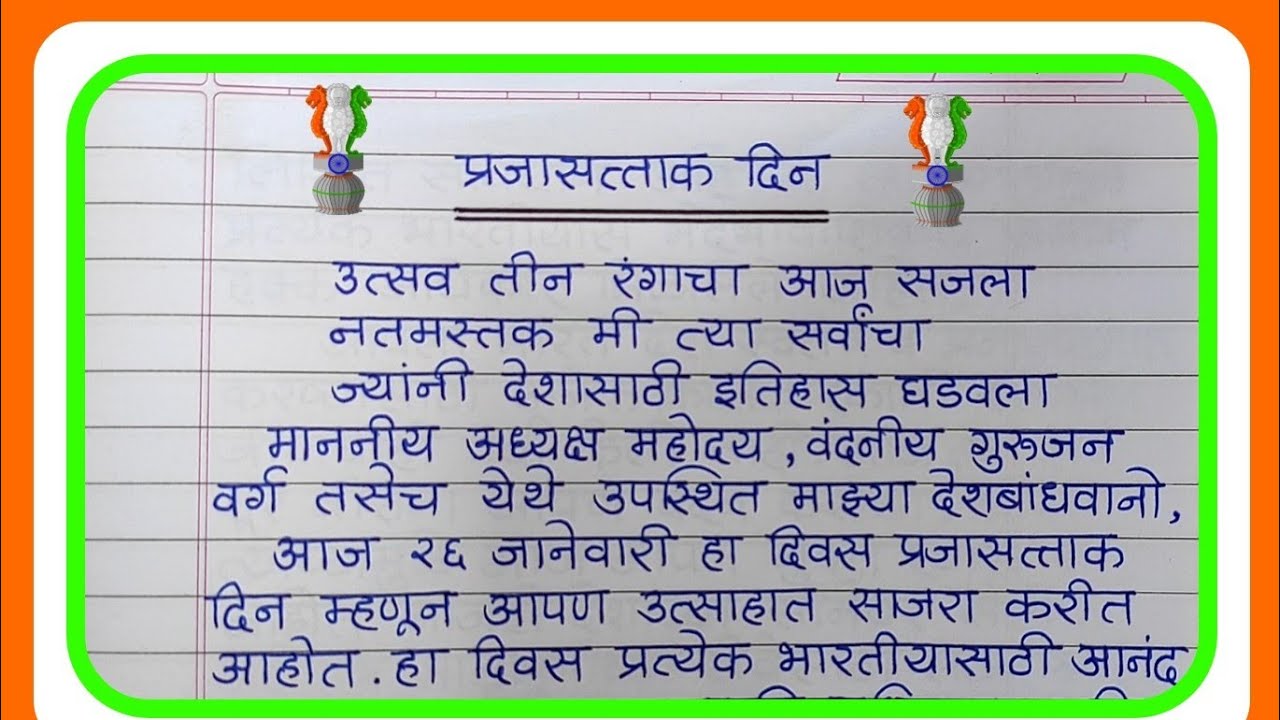 प्रजासत्ताक दिन
उत्सव तीन रंगाचा आज सजला
नतमस्तक मी त्या सर्वांचा
ज्यांनी देशासाठी इतिहास घडवला
माननीय अध्यक्ष महोदय, वंदनीय गुरुजन
वर्ग तसेच येथे उपस्थित माझ्या देशबांधवानो,
आज २६ जानेवारी हा दिवस प्रजासत्ताक
दिन म्हणून आपण उत्साहात साजरा करीत
आहोत. हा दिवस प्रत्येक भारतीयासाठी आनंद